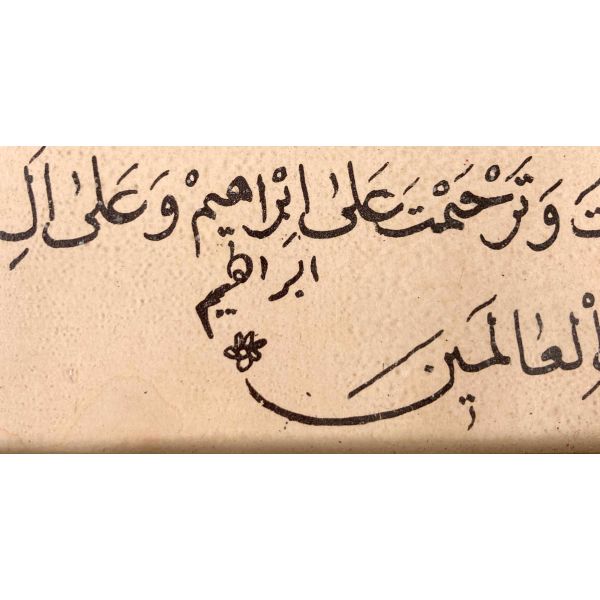 ت وَتَرَحَّمْتَ عَلٰى اِبْرٰاهيمْ وَعَلٰى اٰلِ
ابراهيم
الْعٰالَمَينَ